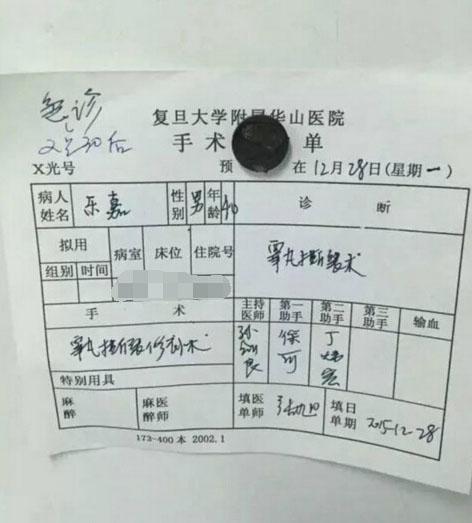 急诊
复旦大学附属华山医院
手术 单
X光号 预 在12月28日(星期一)
病人姓名 乐嘉 性别 男 年龄 40 诊断
拟用 病室 床位 住院号
组别 时间
睾丸 裂术
手术 主持医师 第一助手 第二助手 第三助手 输血
睾丸 裂修补术
特别用具
麻醉 麻医醉师 填医单师 填日单期 2015-12-28
173-400本 2002.1